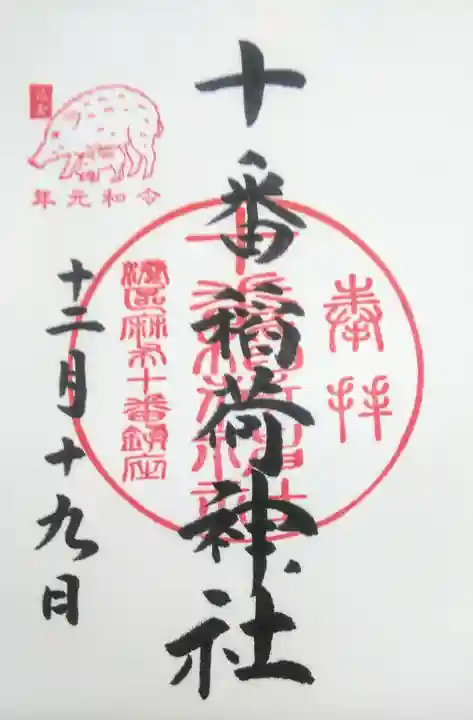 奉拝
十番稲荷神社
港区麻布十番鎮座
令和元年
十二月十九日